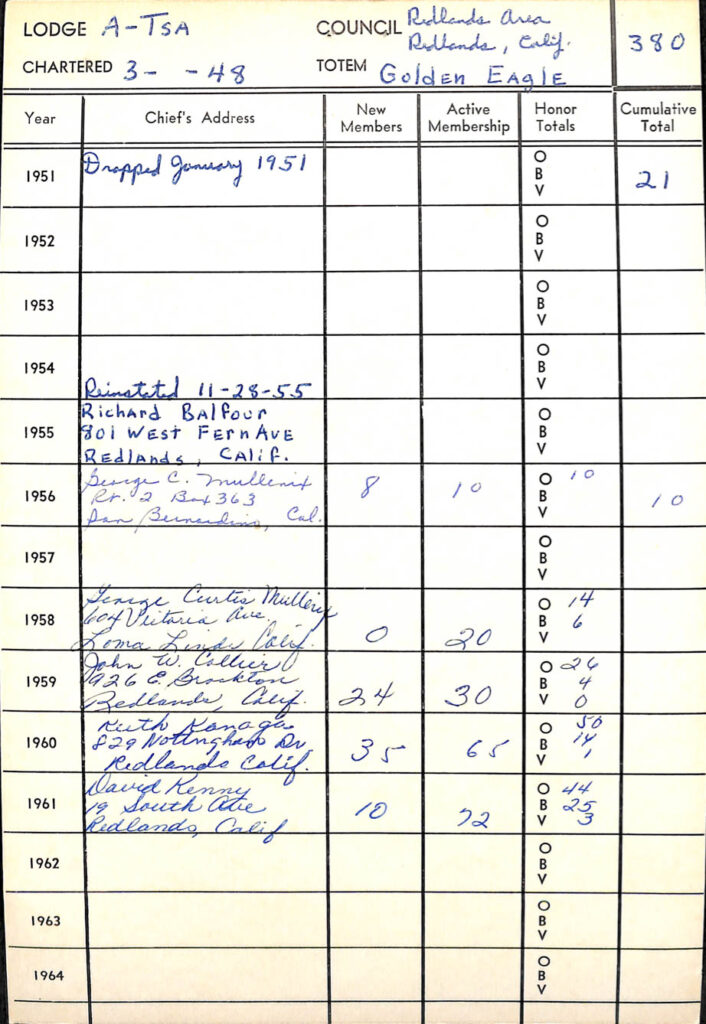 LODGE A-TSA COUNCIL Redlands Area
Redlands, Calif. 380
CHARTERED 3- -48 TOTEM Golden Eagle
Year Chief's Address New Members Active Membership Honor Totals Cumulative Total
1951 Dropped January 1951 O B V 21
1952 O B V
1953 O B V
1954 O B V
Reinstated 11-28-55
Richard Balfour
1955 801 West Fern Ave O B V
Redlands, Calif.
George C. Mullenix
1956 Rt. 2 Box 363 8 10 O 10 B V 10
San Bernardino, Cal.
1957 O B V
George Curtis Mullenix
1958 604 Vitoria Ave O 14 B 6 V
Loma Linda Calif. 0 20
John W. Collier
1959 926 E. Brockton O 26 B 4 V 0
Redlands, Calif. 24 30
Keith Kanaga
1960 829 Nottingham Dr. 35 65 O 50 B 14 V 1
Redlands Calif.
David Kenny
1961 19 South Ave 10 72 O 44 B 25 V 3
Redlands, Calif
1962 O B V
1963 O B V
1964 O B V